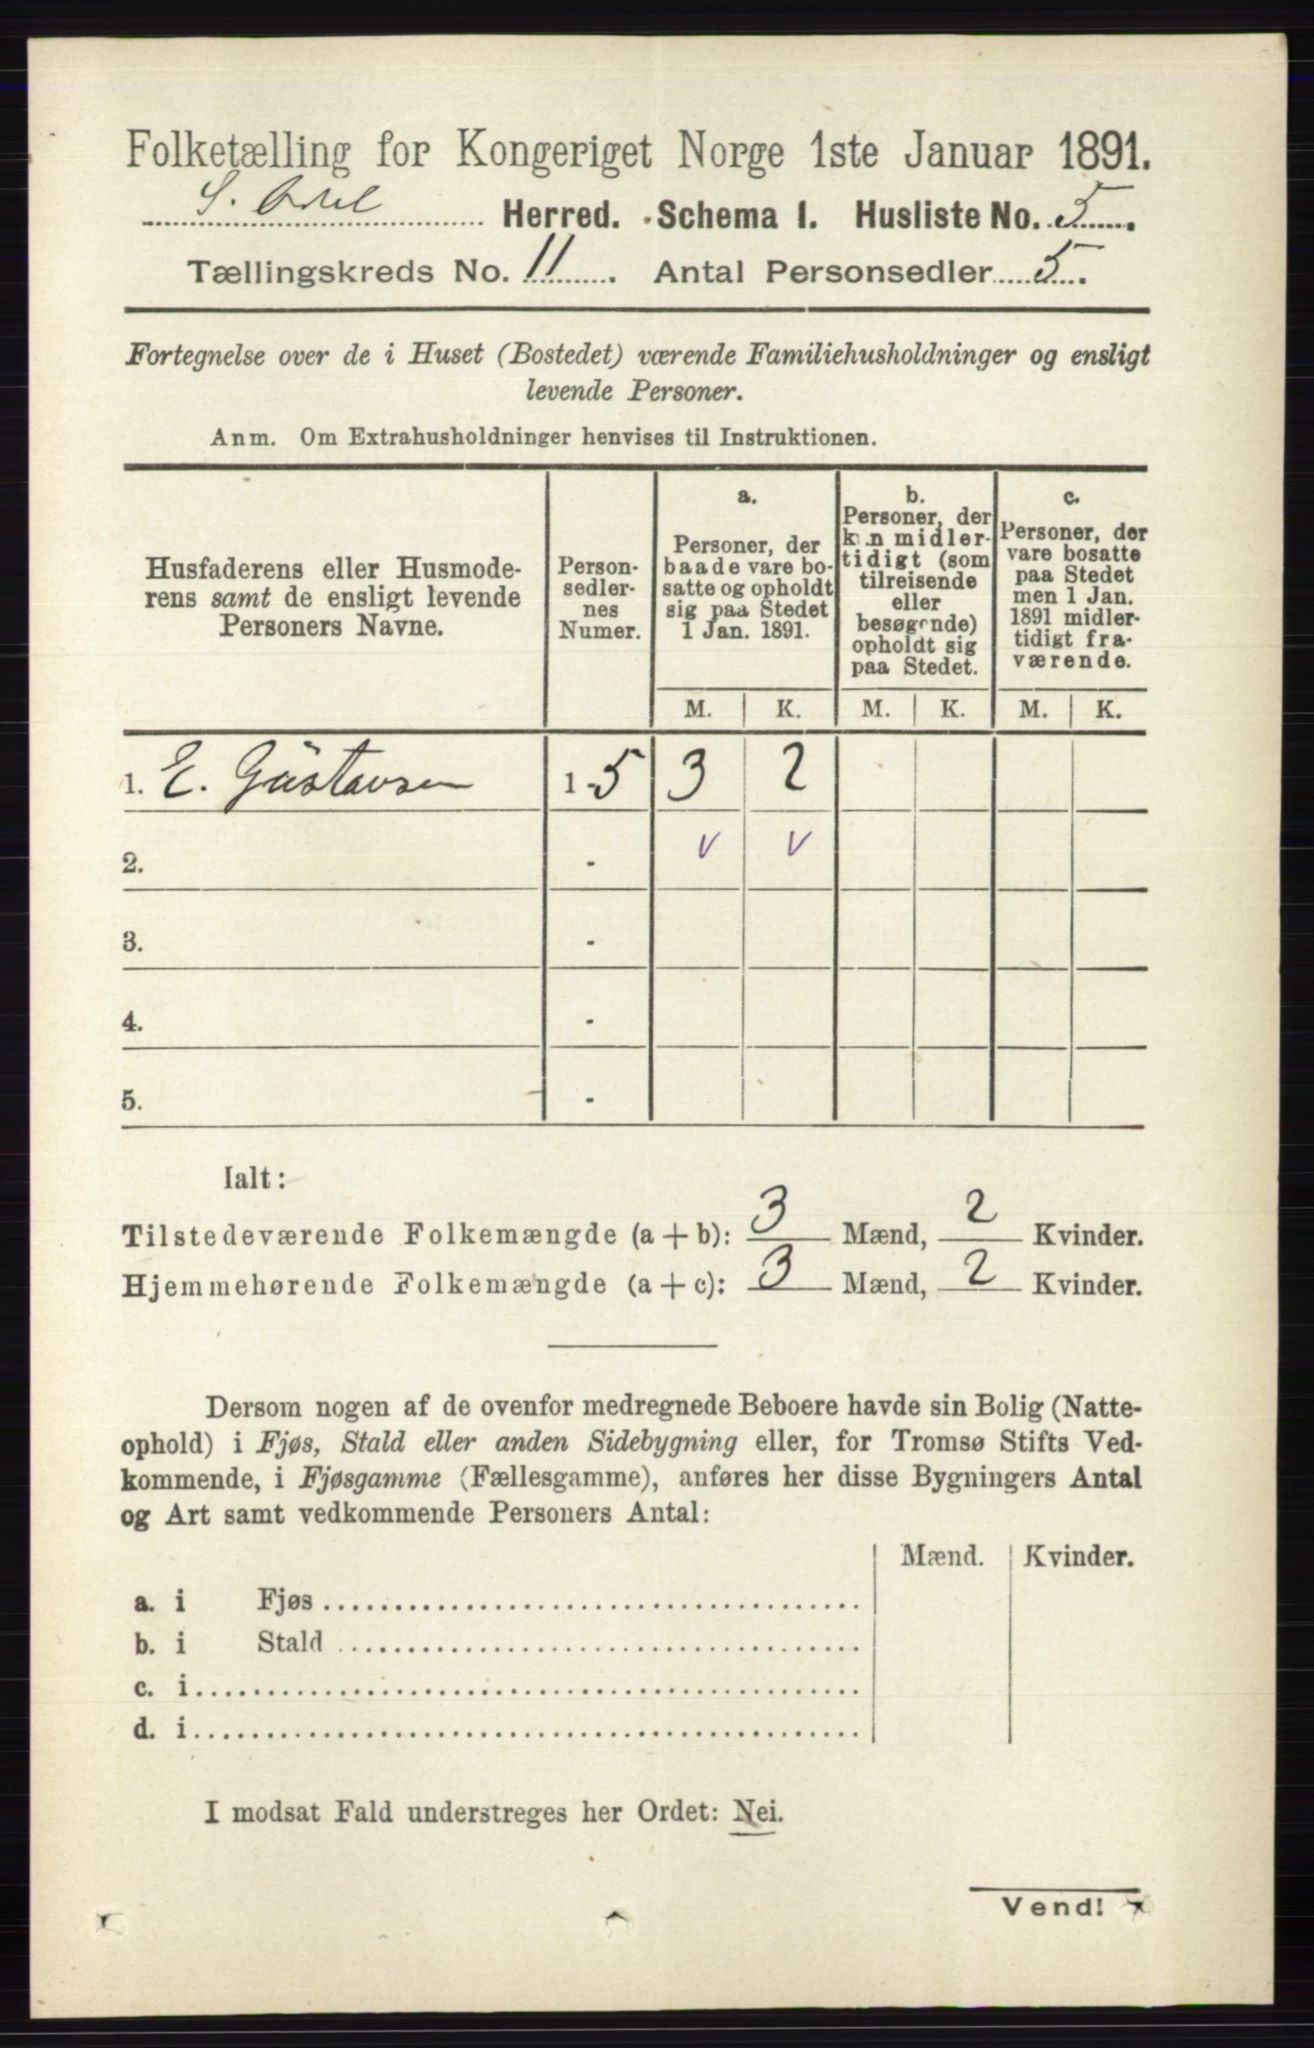 Folketælling for Kongeriget Norge 1ste Januar 1891.
S. Odal Herred. Schema I. Husliste No. 5.
Tællingskreds No. 11. Antal Personsedler 5.
Fortegnelse over de i Huset (Bostedet) værende Familiehusholdninger og ensligt
levende Personer.
Anm. Om Extrahusholdninger henvises til Instruktionen.
Husfaderens eller Husmode-
rens samt de ensligt levende
Personers Navne.
Person-
sedler-
nes
Numer.
a.
Personer, der
baade vare bo-
satte og opholdt
sig paa Stedet
1 Jan. 1891.
b.
Personer, der
kun midler-
tidigt (som
tilreisende
eller
besøgende)
opholdt sig
paa Stedet.
c.
Personer, der
vare bosatte
paa Stedet
men 1 Jan.
1891 midler-
tidigt fra-
værende.
M. K. M. K. M. K.
1. E. Gustavsen 1-5 3 2
2. - v v
3. -
4. -
5. -
Ialt:
Tilstedeværende Folkemængde (a + b): 3 Mænd, 2 Kvinder.
Hjemmehørende Folkemængde (a + c): 3 Mænd, 2 Kvinder.
Dersom nogen af de ovenfor medregnede Beboere havde sin Bolig (Natte-
ophold) i Fjøs, Stald eller anden Sidebygning eller, for Tromsø Stifts Ved-
kommende, i Fjøsgamme (Fællesgamme), anføres her disse Bygningers Antal
og Art samt vedkommende Personers Antal:
Mænd. Kvinder.
a. i Fjøs
b. i Stald
c. i
d. i
I modsat Fald understreges her Ordet: Nei.
Vend!